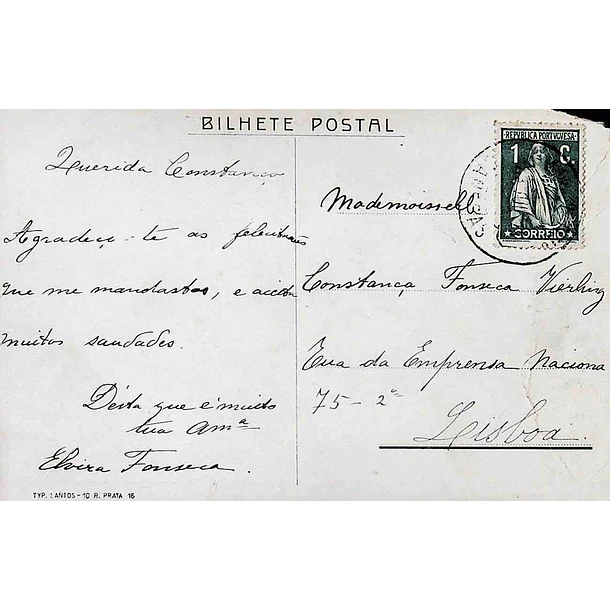 BILHETE POSTAL
REPUBLICA PORTUGUESA
1 C.
CORREIO
Querida Constança
Agradeço-te as felicitações
que me mandastes, e aceita
muitos saudades.
Desta que é muito
tua Amª
Elvira Fonseca.
TYP. SANTOS - 10 R. PRATA 16
Mademoiselle
Constança Fonseca Vierling
Rua da Emprensa Naciona
75 - 2º
Lisboa.